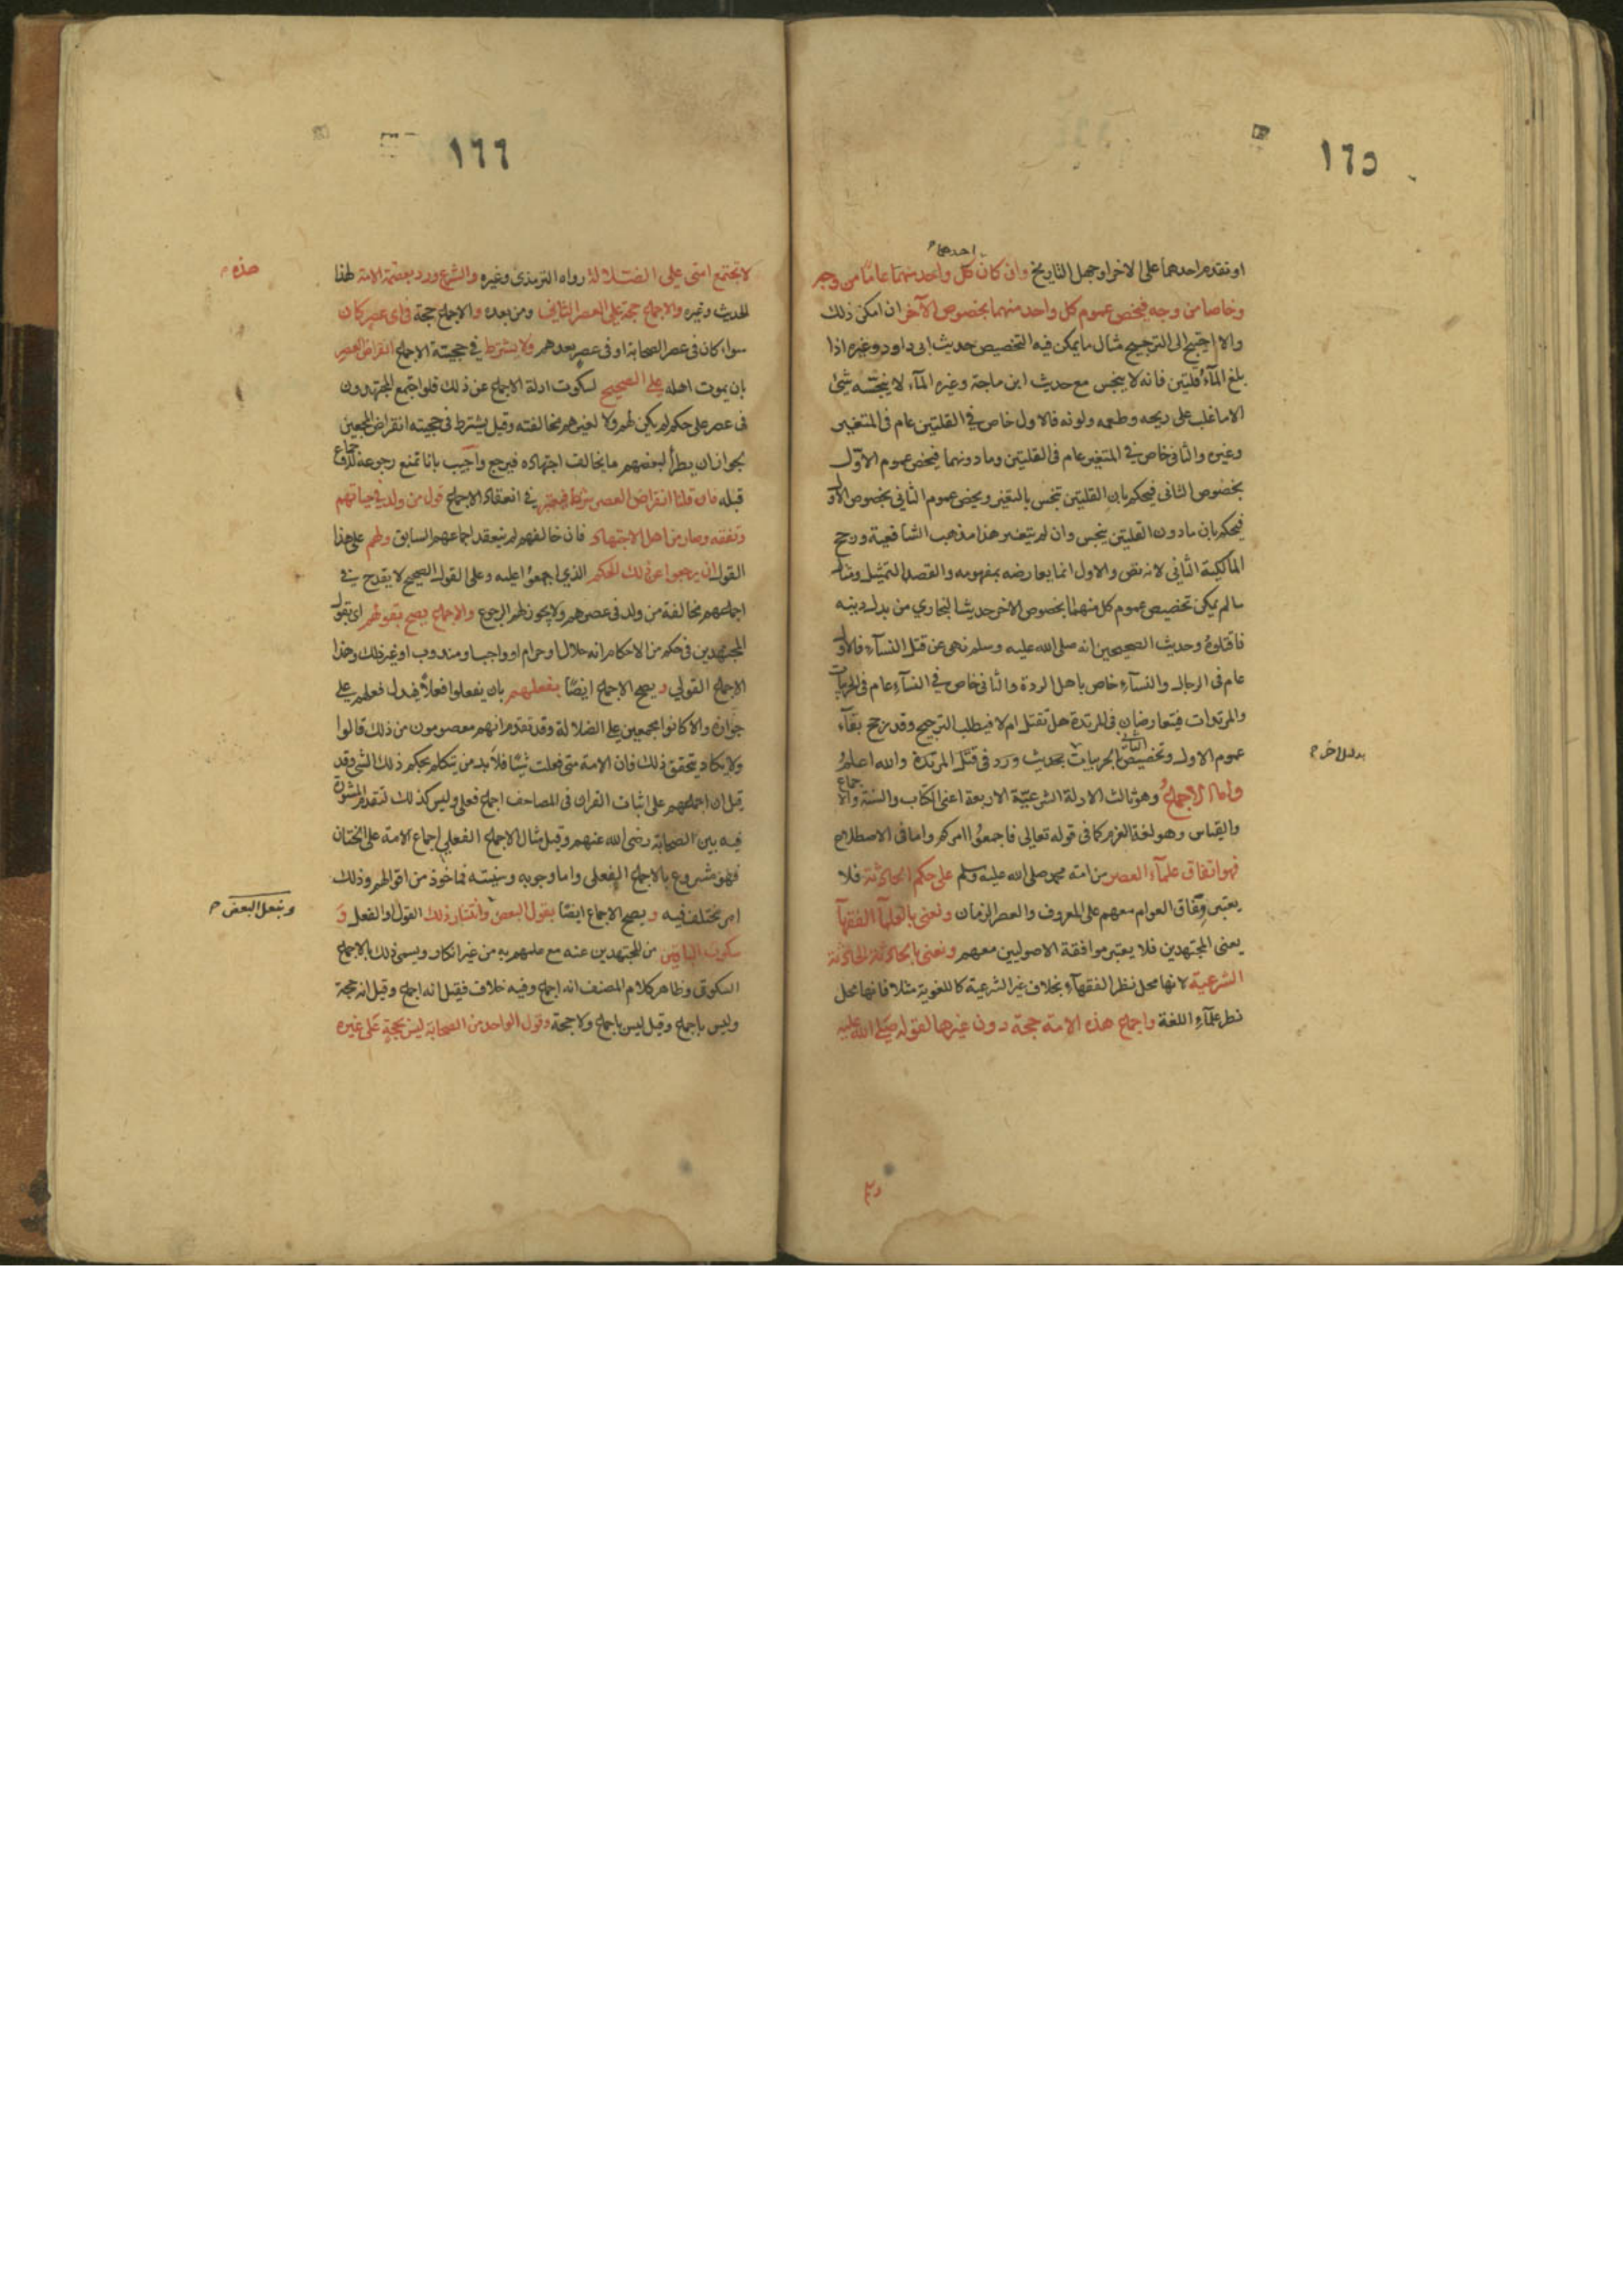 ١٦٥
احدهما
او تقدم احدهما على الاخر او جهل التاريخ وان كان كل واحد منهما عاما من وجه
وخاصا من وجه فيخص عموم كل واحد منهما بخصوص الآخر ان امكن ذلك
والا احتيج الى الترجيح مثال ما يمكن فيه التخصيص حديث ابي داود وغيره اذا
بلغ المآء قلتين فانه لا ينجس مع حديث ابن ماجة وغيره المآء لا ينجسه شئ
الا ما غلب على ريحه وطعمه ولونه فالاول خاص في القلتين عام في المتغير
وغيره والثاني خاص في المتغير عام في القلتين وما دونهما فيخص عموم الاول
بخصوص الثاني فيحكم بان القلتين تنجس بالتغير ويخص عموم الثاني بخصوص الاول
فيحكم بان ما دون القلتين ينجس وان لم يتغير هذا مذهب الشافعية ورجح
المالكية الثاني لانه نص والاول انما يعارضه بمفهومه والقصد التمثيل ومثال
ما لم يمكن تخصيص عموم كل منهما بخصوص الاخر حديث البخاري من بدل دينه
فاقتلوه وحديث الصحيحين انه صلى الله عليه وسلم نهى عن قتل النسآء فالاول
عام في الرجال والنسآء خاص باهل الردة والثاني خاص في النسآء عام في الحربيات
والمرتدات فيتعارضان في المرتدة هل تقتل ام لا فيطلب الترجيح وقد يرجح بقآء
عموم الاول وتخصيص الثاني بالحربيات بحديث ورد في قتل المرتدة والله اعلم
واما الاجماع وهو ثالث الادلة الشرعية الاربعة اعني الكتاب والسنة والاجماع
والقياس وهو لغة العزم كما في قوله تعالى فاجمعوا امركم واما في الاصطلاح
فهو اتفاق علمآء العصر من امة محمد صلى الله عليه وسلم على حكم الحادثة فلا
يعتبر وفاق العوام معهم على المعروف والعصر الزمان ونعني بالعلمآء الفقهآء
يعني المجتهدين فلا يعتبر موافقة الاصوليين معهم ونعني بالحادثة الحادثة
الشرعية لانها محل نظر الفقهآء بخلاف غير الشرعية كاللغوية مثلا فانها محل
نظر علمآء اللغة واجماع هذه الامة حجة دون غيرها لقوله صلى الله عليه
١٦٦
لا تجتمع امتي على الضلالة رواه الترمذي وغيره والشرع ورد بعصمة الامة لهذا
هذه
الحديث وغيره والاجماع حجة على العصر الثاني ومن بعده والاجماع حجة في اي عصر كان
سواء كان في عصر الصحابة او في عصر بعدهم ولا يشترط في حجية الاجماع انقراض العصر
بان يموت اهله على الصحيح لسكوت ادلة الاجماع عن ذلك فلو اجتمع المجتهدون
في عصر على حكم لم يكن لهم ولا لغيرهم مخالفته وقيل يشترط في حجيته انقراض المجمعين
لجواز ان يطرأ لبعضهم ما يخالف اجتهاده فيرجع واجيب بانا نمنع رجوعه للاجماع
قبله فان قلنا انقراض العصر شرط فيعتبر في انعقاد الاجماع قول من ولد في حياتهم
وتفقه وصار من اهل الاجتهاد فان خالفهم لم ينعقد اجماعهم السابق ولهم على هذا
القول ان يرجعوا عن ذلك الحكم الذي اجمعوا عليه وعلى القول الصحيح لا يقدح في
اجماعهم مخالفة من ولد في عصرهم ولا يجوز لهم الرجوع والاجماع يصح بقولهم اي بقول
المجتهدين في حكم من الاحكام انه حلال او حرام او واجب او مندوب او غير ذلك وهذا
الاجماع القولي ويصح الاجماع ايضا بفعلهم بان يفعلوا فعلا فيدل فعلهم على
جوازه والا كانوا مجمعين على الضلالة وقد تقدم انهم معصومون من ذلك قالوا
ولا يكاد يتحقق ذلك فان الامة متى فعلت شيئا فلا بد من متكلم بحكم ذلك الشئ وقد
قيل ان اجماعهم على اثبات القران في المصاحف اجماع فعلي وليس كذلك لتقدم المشورة
فيه بين الصحابة رضي الله عنهم وقيل مثال الاجماع الفعلي اجماع الامة على الختان
فهو مشروع بالاجماع الفعلي واما وجوبه وسنيته فماخوذ من اقوالهم وذلك
امر مختلف فيه ويصح الاجماع ايضا بقول البعض وانتشار ذلك القول او الفعل و
وبفعل البعض
سكوت الباقين من المجتهدين عنه مع علمهم به من غير انكار ويسمى ذلك بالاجماع
السكوتي وظاهر كلام المصنف انه اجماع وفيه خلاف فقيل انه اجماع وقيل انه حجة
وليس باجماع وقيل ليس باجماع ولا حجة وقول الواحد من الصحابة ليس بحجة على غيره